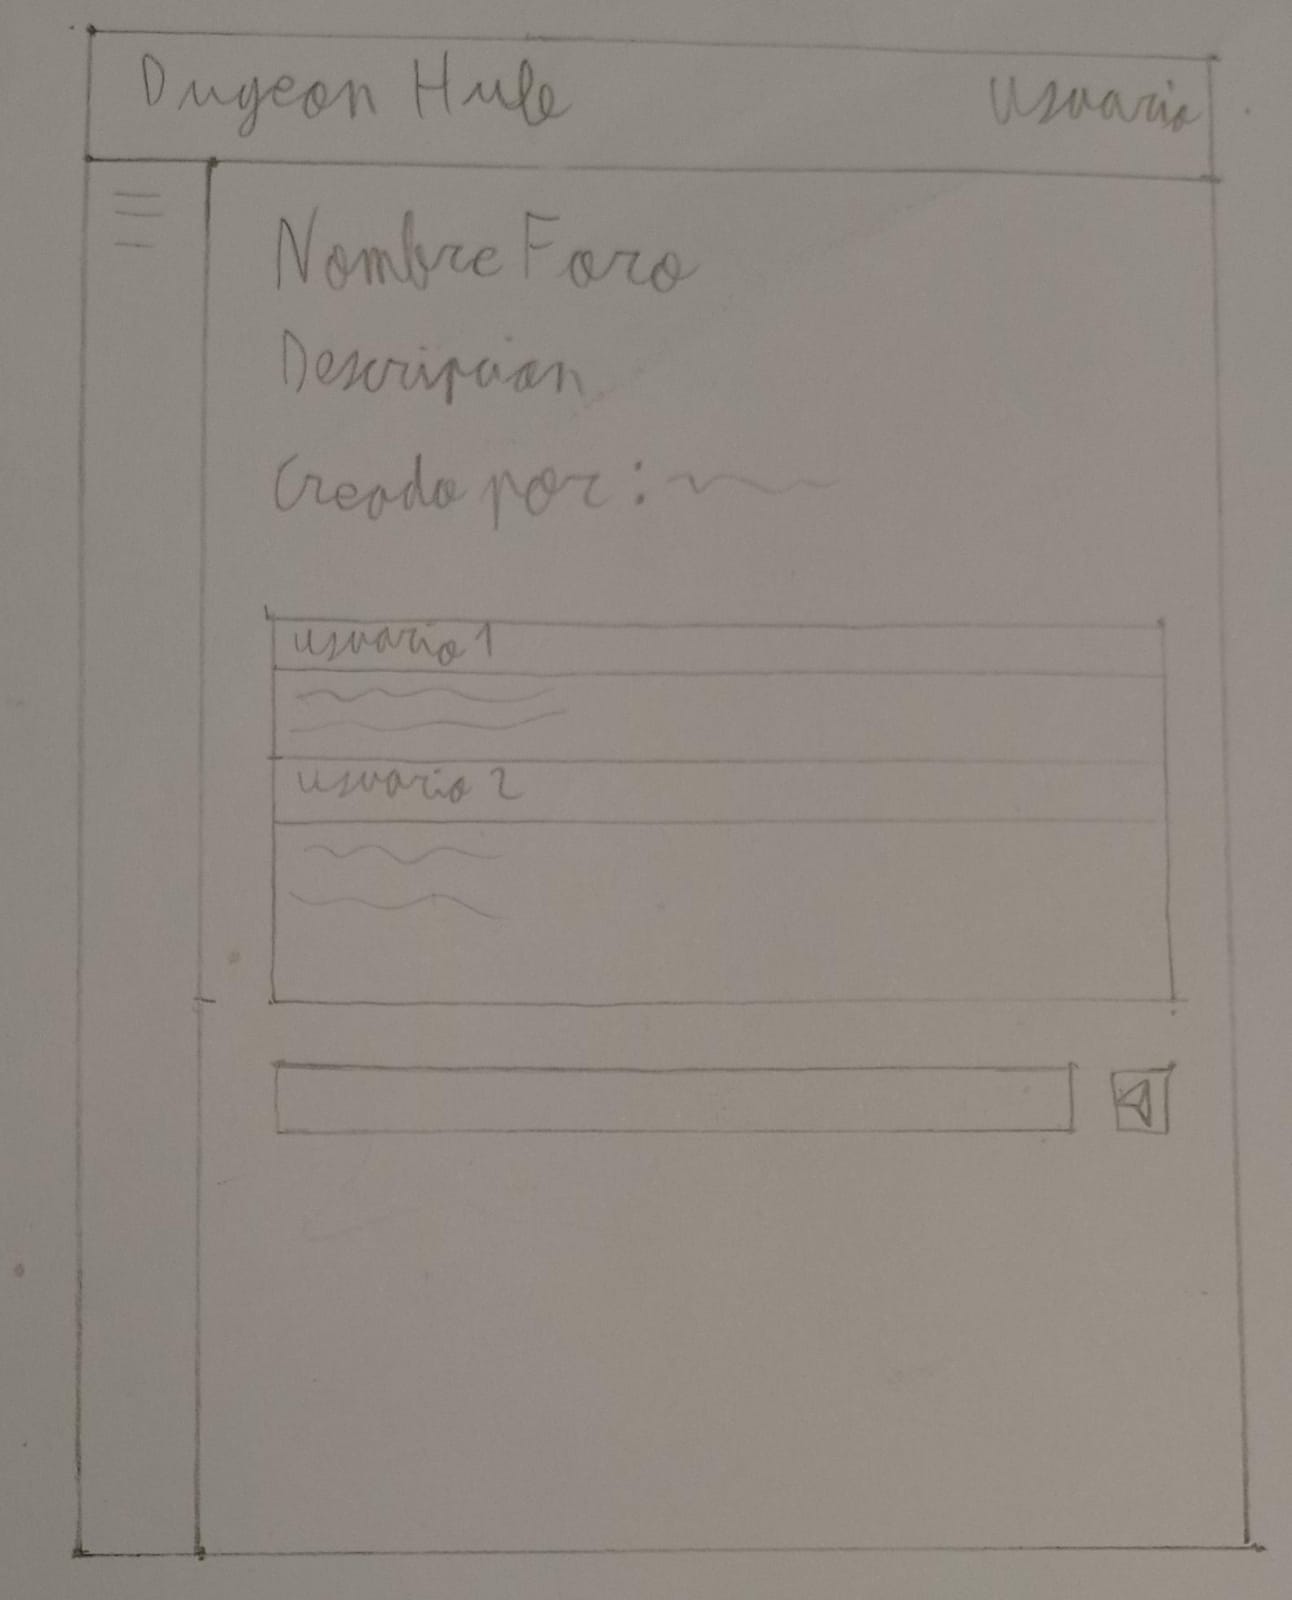 Dugeon Hub
Usuario
Nombre Foro
Descripcion
Creado por:
usuario 1
usuario 2